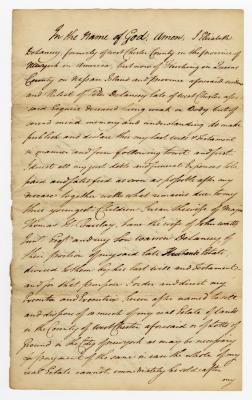 In the Name of God, Amen. I Elizabeth
Delancey formerly of West Chester County in the province of
Newyork in America, but now of Flushing in Queens
County on Nassau Island and Province aforesaid widow
and Relict of Peter Delancey late of West Chester afore
said Esquire deceased being weak in Body but of
sound mind memory and understanding do make
publish and declare this my last will & Testament
in manner and form following to wit, and first
I direct all my just debts and funeral Expences to be
paid and satisfied as soon as possible after my
decease together with what remains due to my
three youngest Children Susan the wife of Major
Thomas H. Barclay, Jane the wife of John Watts
Junr. Esqr. and my son Warren Delancey of
their portion of my said late Husbands Estate
devised to them by his last will and Testament
and for that purpose I order and direct my
Executor and Executrix herein after named to sell
and dispose of so much of my real Estate of lands
in the County of West Chester aforesaid or of lotts of
Ground in the City of newyork as may be necessary
in payment of the same in case the whole of my
real Estate cannot immediately be sold after
my